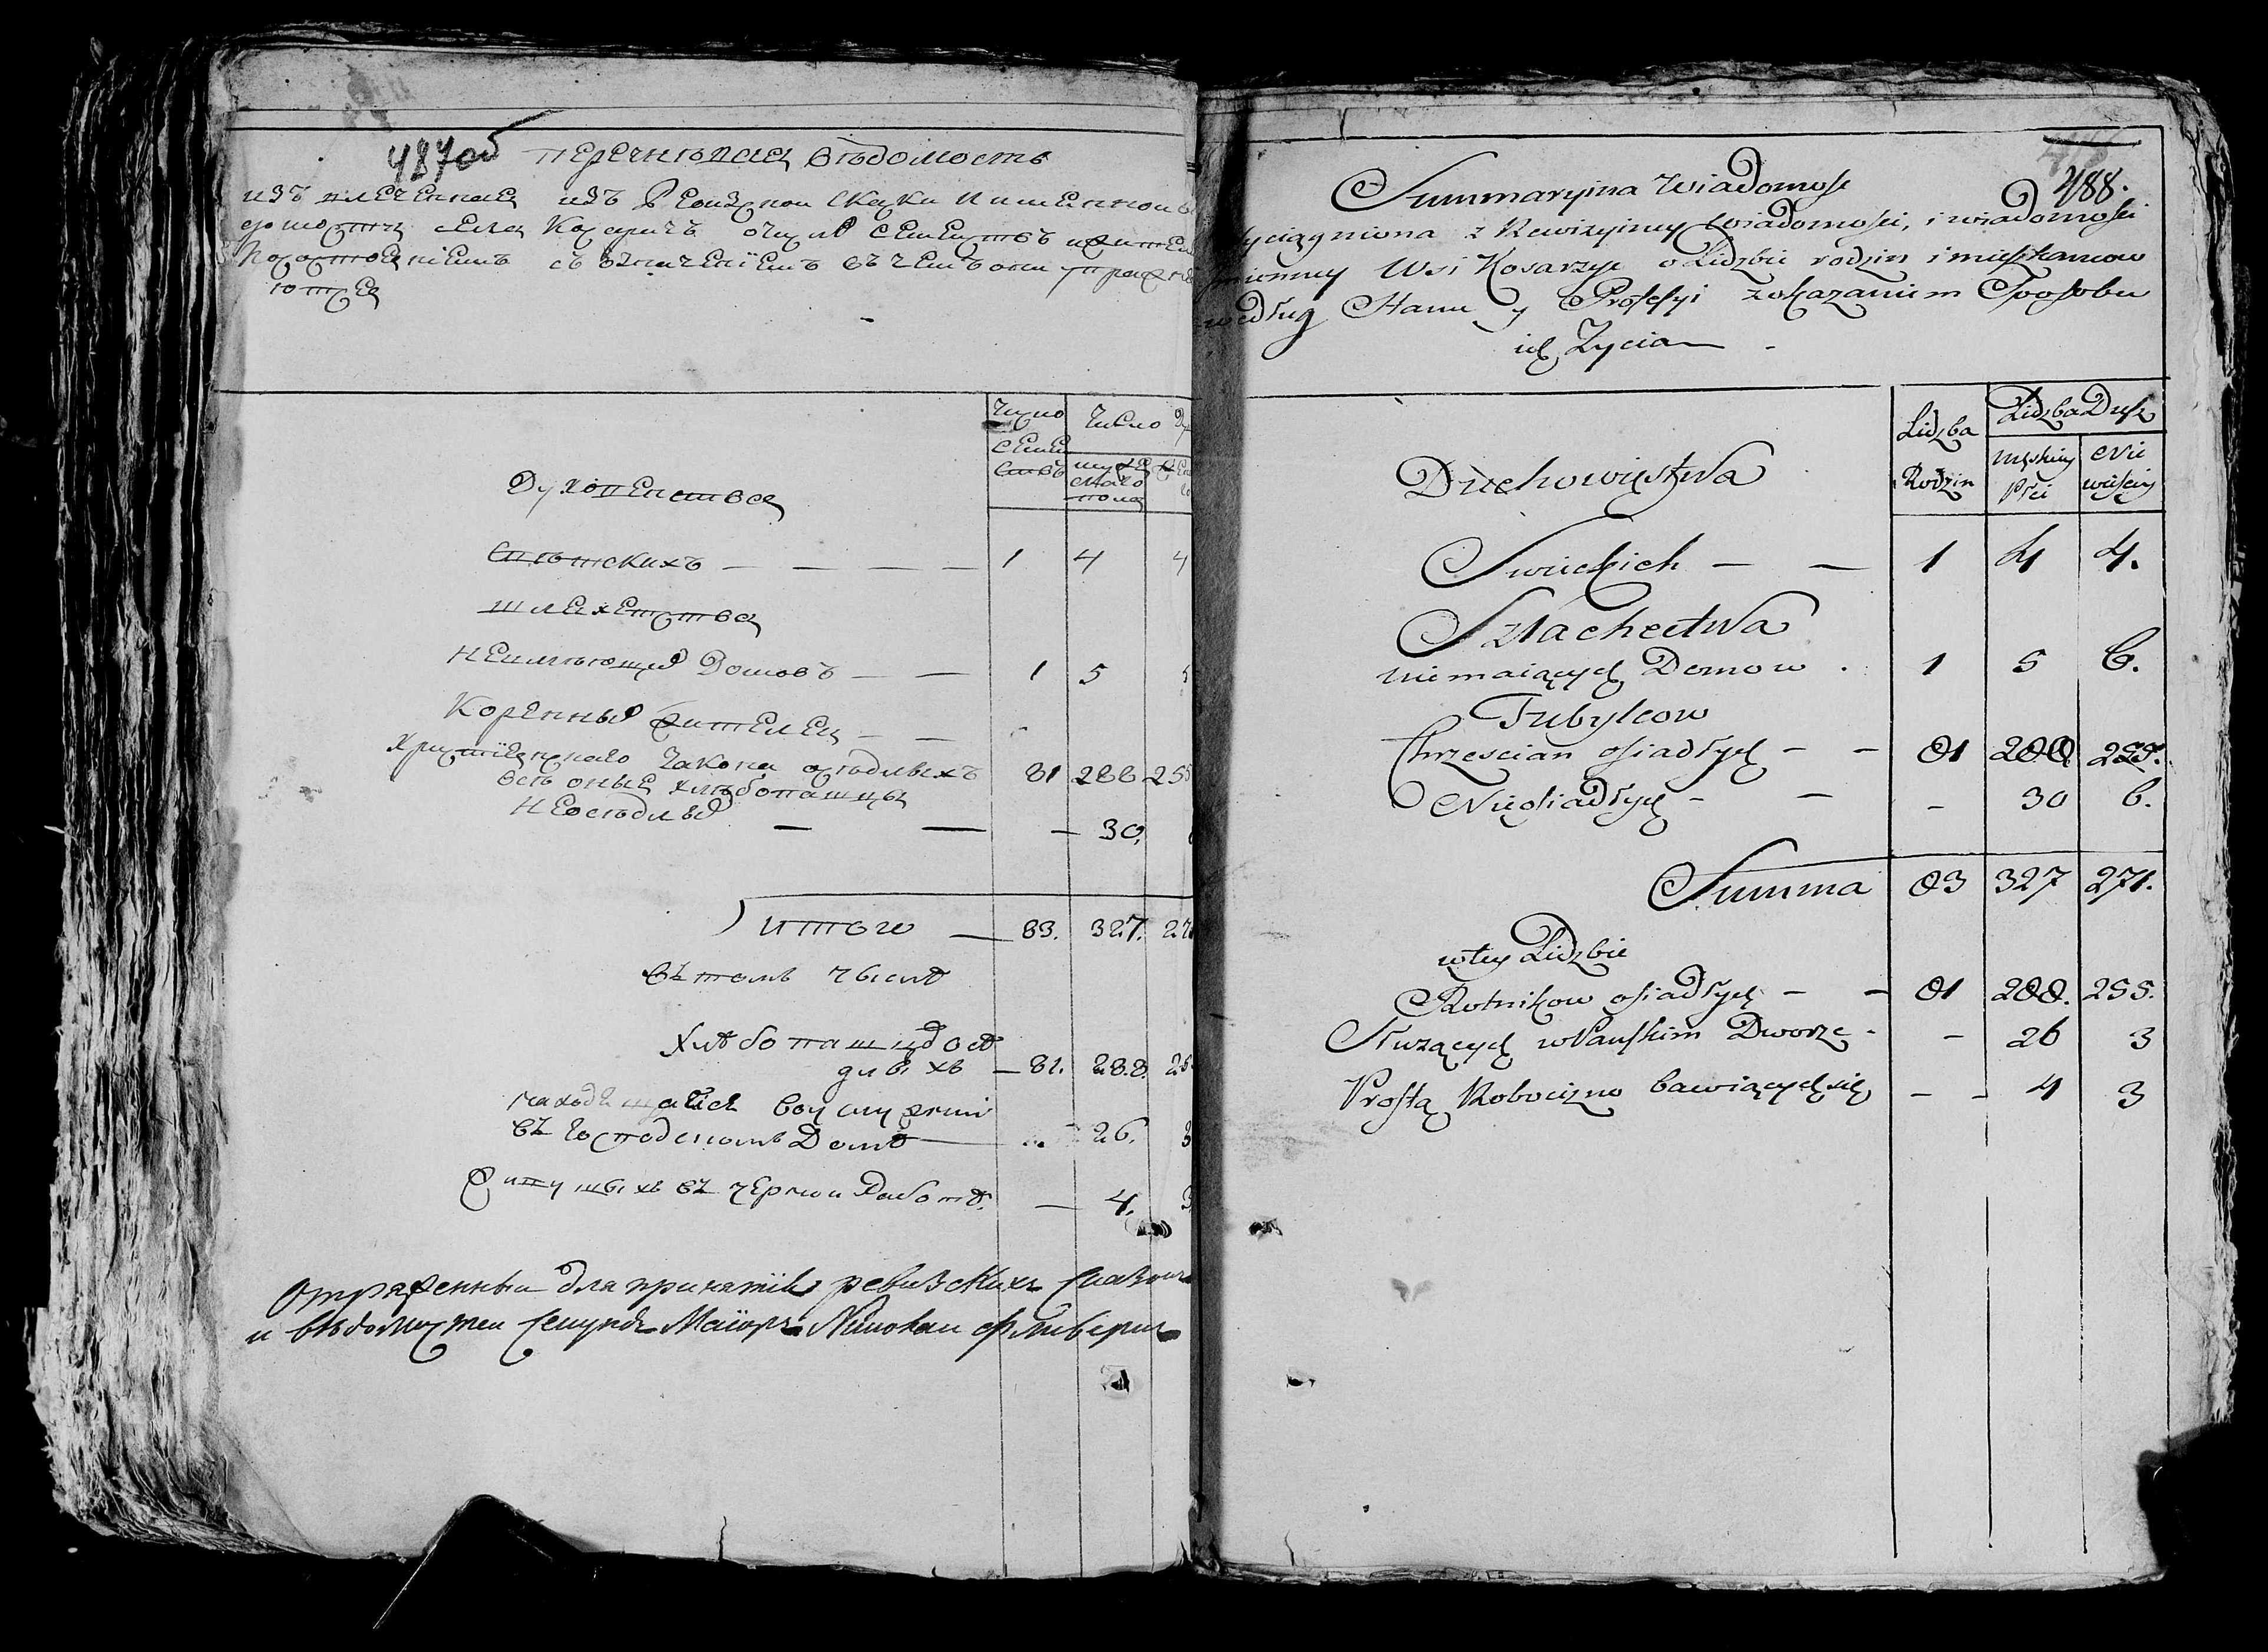 487 об
перечневая ведомость
извлеченная изъ Ревизкой скаски и именной
ведомости села Косаричъ о числе семействъ и жителей
по состоянiемъ съ означенiемъ въ чемъ они упражня
ются
число семействъ
число ду
мужескаго пола
Духовенства
Свѣтскихъ — — — — 1 4 4
шляхетства
неимѣющих Домовъ — — 1 5
Коренных жителеи — —
христiянскаго закона оседлыхъ 81 288 255
все оные хлебопашцы
неоседлых — — — 30.
итого — 83. 327. 27
въ томъ числе
хлебопашцов осе
длыхъ — 81. 288. 25
находящагося во услужении
въ господскомъ Доме — 26. 3
живущихъ въ черной работе. — 4. 3
Отряженныи для принятiя ревизскихъ сказокъ
и ведомостеи секундъ Маiоръ Николаи
488.
Summaryina Wiadomosc
Wyciągniona z Rewizyiney Wiadomosci, i wiadomosci
imienney Wsi Kosarzyc o Lidzbie rodzin i mieszkancow
według Stanu y Professyi z okazaniem Sposobu
ich Zycia —
Lidzba Rodzin
Lidzba Dusz
męskiey płci
Niewiesciey
Duchowięstwa
Swieckich — — 1 4 4.
Szlachectwa
niemaiących Domow . 1 5 6.
Tubylcow
Chrzescian osiadłych — — 81 288. 255.
Nieosiadłych — — — 30 6.
Summa 83 327 271.
w tey Lidzbie
Rolnikow osiadłych — — 81 288. 255.
Słuzących w Panskim Dworze - — 26 3
Prostą Robocizno bawiących się — — 4 3